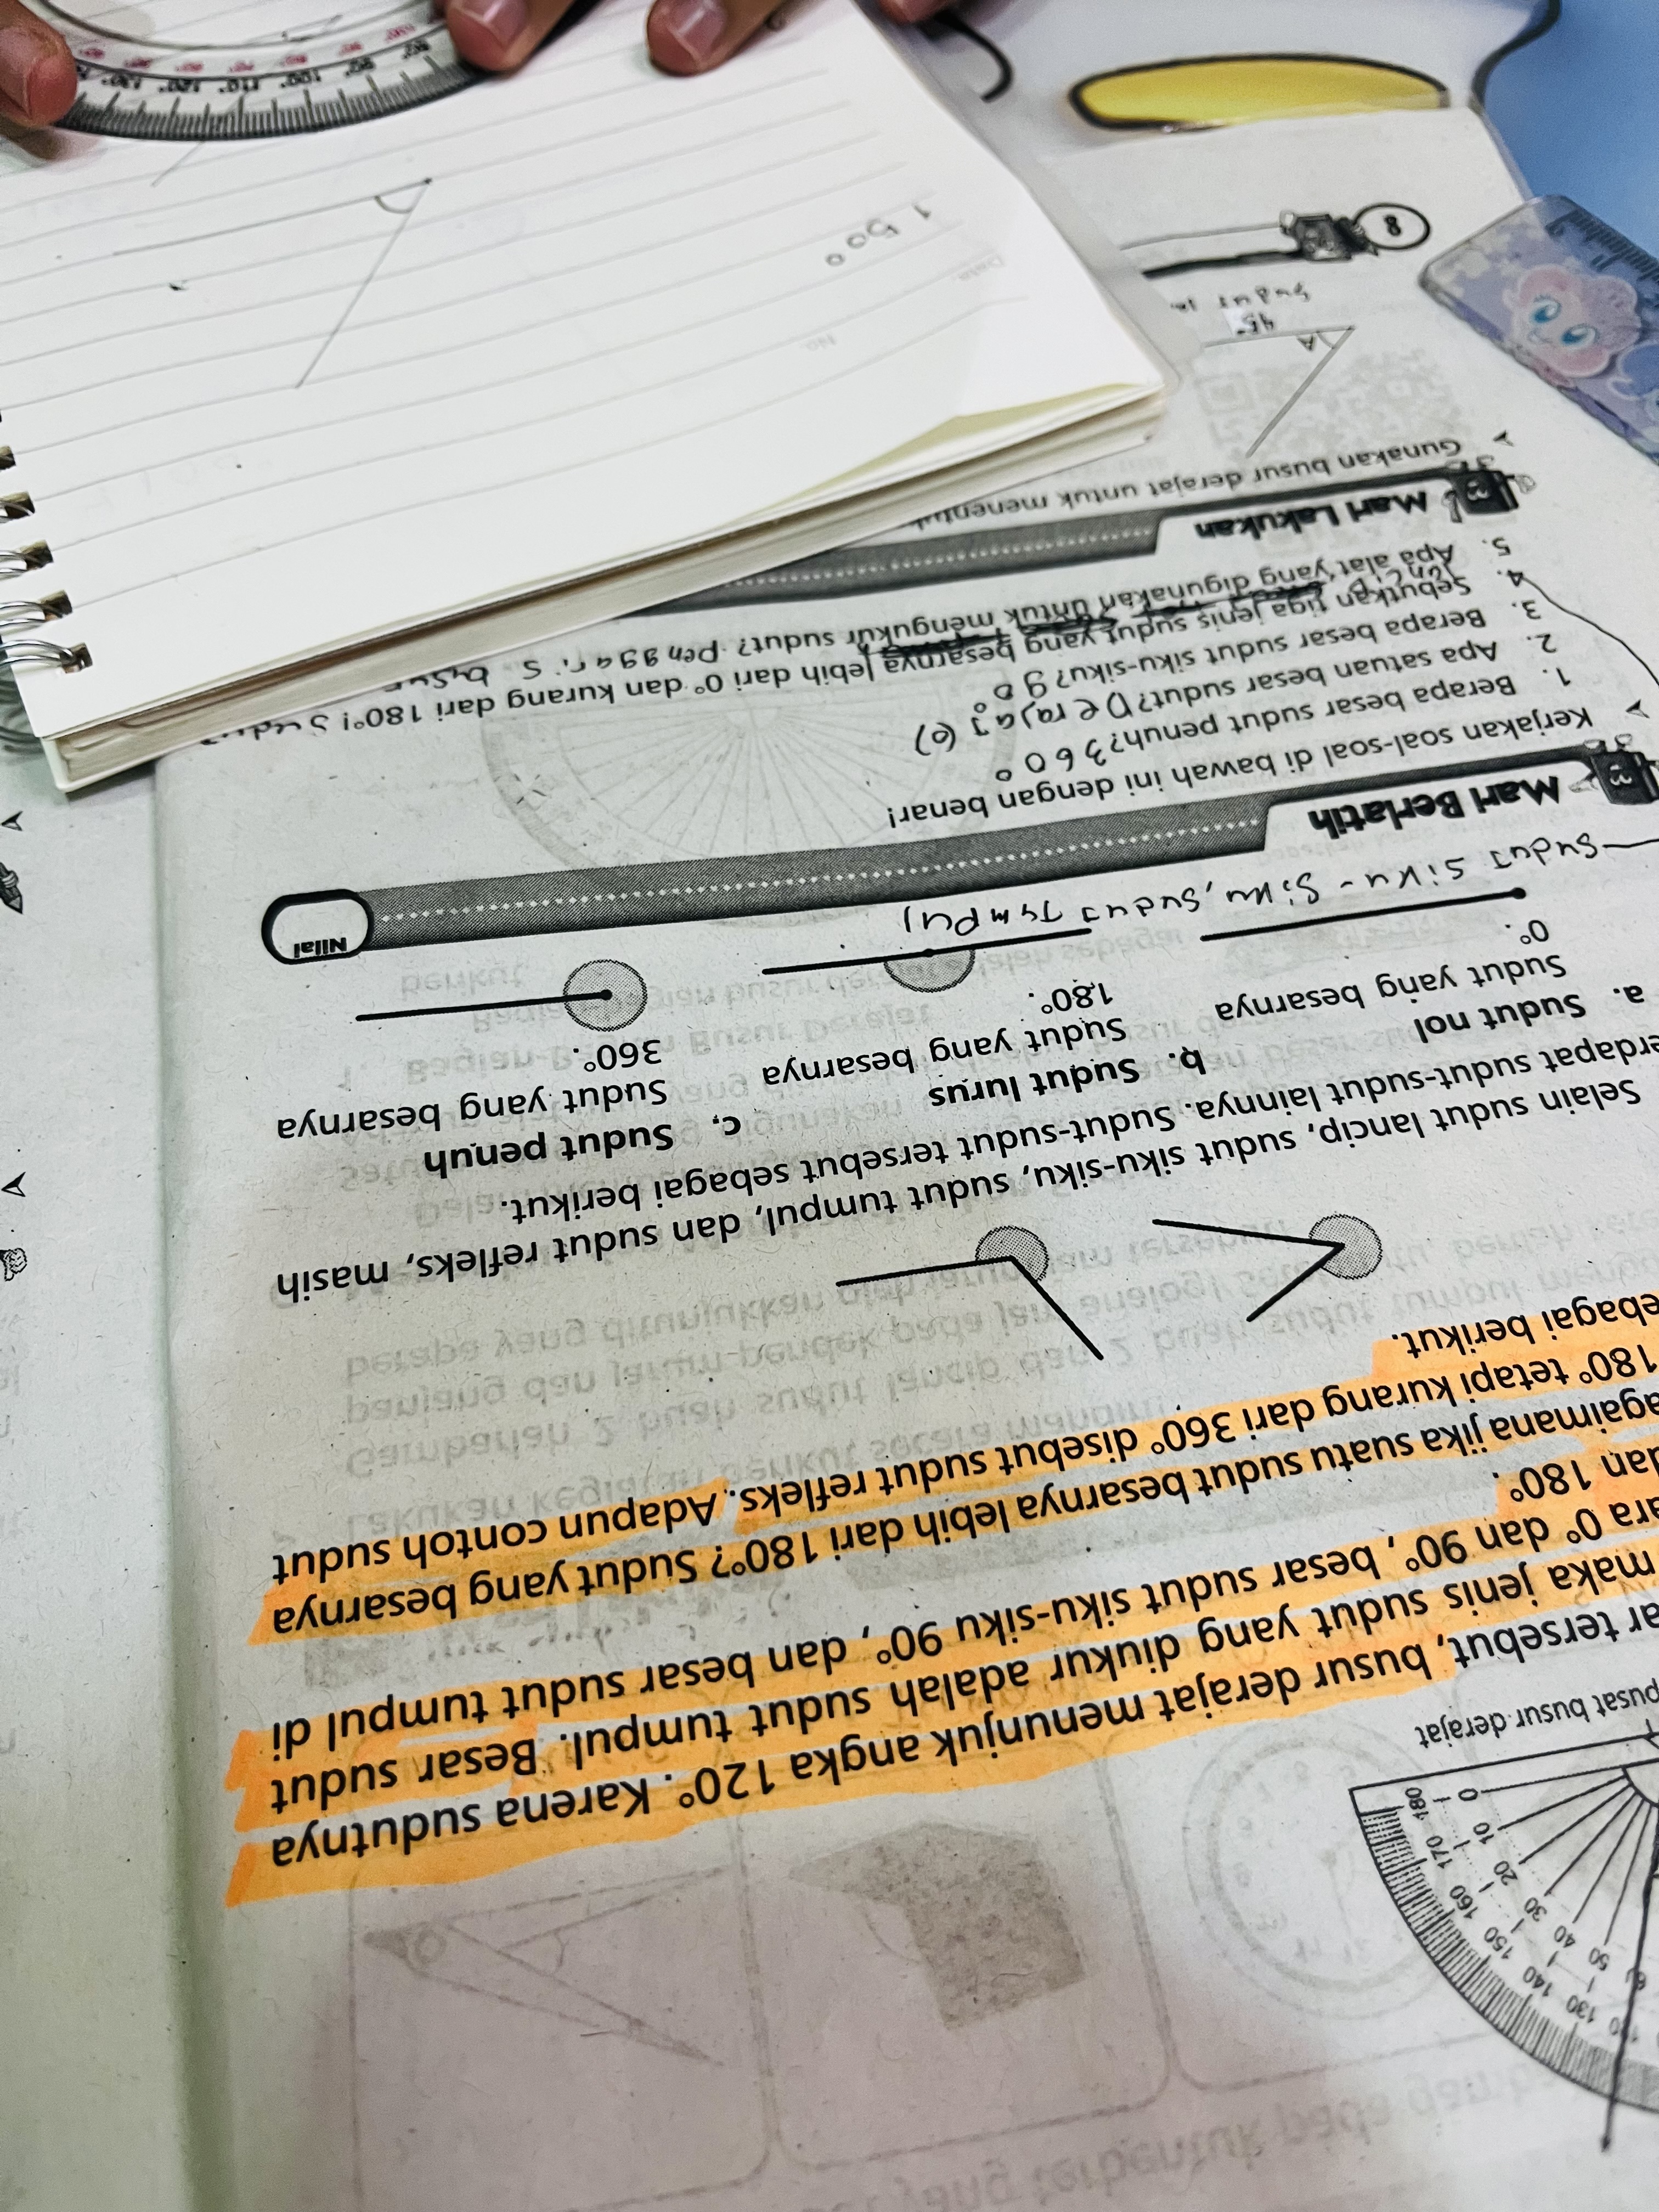 pusat busur derajat
0 10 20 30 40 50
180 170 160 150 140 130
ar tersebut, busur derajat menunjuk angka 120°. Karena sudutnya
maka jenis sudut yang diukur adalah sudut tumpul. Besar sudut
ara 0° dan 90°, besar sudut siku-siku 90°, dan besar sudut tumpul di
dan 180°.
agaimana jika suatu sudut besarnya lebih dari 180°? Sudut yang besarnya
180° tetapi kurang dari 360° disebut sudut refleks. Adapun contoh sudut
ebagai berikut.
Selain sudut lancip, sudut siku-siku, sudut tumpul, dan sudut refleks, masih
erdapat sudut-sudut lainnya. Sudut-sudut tersebut sebagai berikut.
a. Sudut nol
Sudut yang besarnya
0°.
b. Sudut lurus
Sudut yang besarnya
180°.
c. Sudut penuh
Sudut yang besarnya
360°.
Sudut siku-siku, sudut tumpul
Mari Berlatih
3
Nilai
Kerjakan soal-soal di bawah ini dengan benar!
1. Berapa besar sudut penuh? 360°
2. Apa satuan besar sudut? Derajat (°)
3. Berapa besar sudut siku-siku? 90°
4. Sebutkan tiga jenis sudut yang besarnya lebih dari 0° dan kurang dari 180°!
5. Apa alat yang digunakan untuk mengukur sudut? Penggaris busur
Mari Lakukan
3
Gunakan busur derajat untuk
45°
A
Sudut
8
No.
Date
1 50°
90° 100° 110° 120° 130°